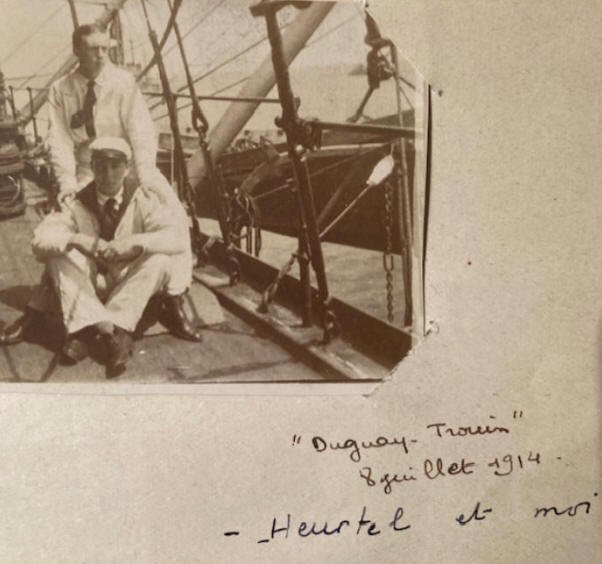 "Duguay-Trouin"
8 juillet 1914.
- Heurtel et moi